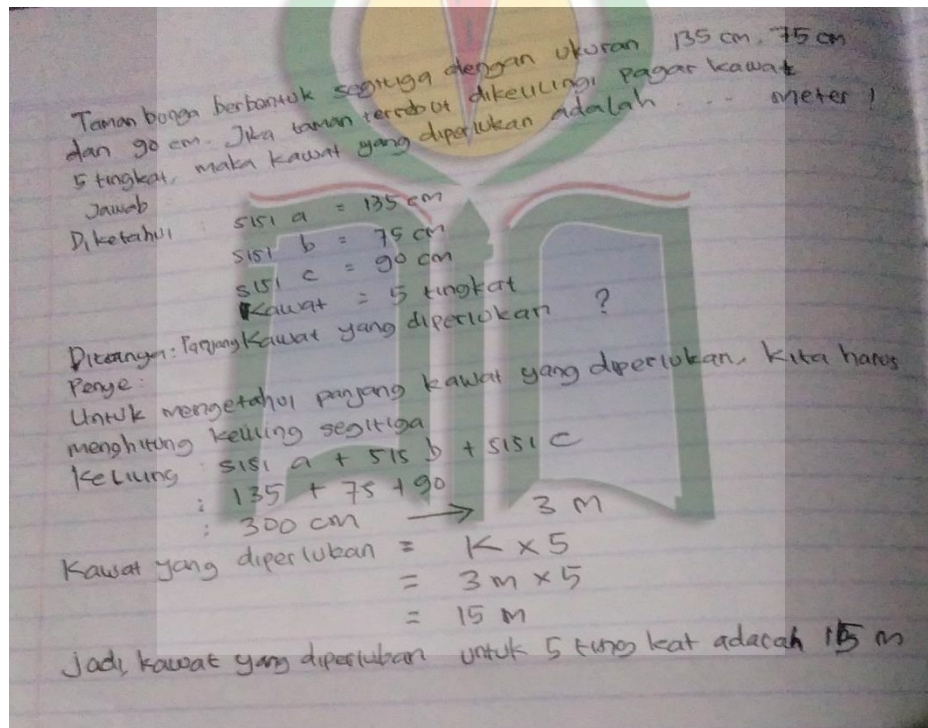 Taman bunga berbentuk segitiga dengan ukuran 135 cm, 75 cm
dan 90 cm. Jika taman tersebut dikelilingi pagar kawat
5 tingkat, maka kawat yang diperlukan adalah ... meter !
Jawab
Diketahui : sisi a = 135 cm
sisi b = 75 cm
sisi c = 90 cm
Kawat = 5 tingkat
Ditanya : Panjang Kawat yang diperlukan ?
Penye :
Untuk mengetahui panjang kawat yang diperlukan, kita harus
menghitung keliling segitiga
Keliling : sisi a + sis b + sisi c
: 135 + 75 + 90
: 300 cm → 3 M
Kawat yang diperlukan = K x 5
= 3 m x 5
= 15 M
Jadi, kawat yang diperlukan untuk 5 tingkat adalah 15 m